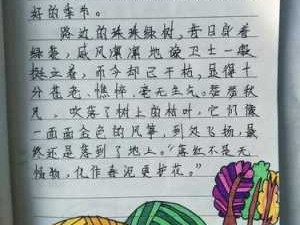 好的季节。
路边的珠珠绿树，昔日身着
绿装，威风凛凛地像卫士一般
挺立着，而今却已干枯，显得十
分苍老、憔悴、毫无生气。瑟瑟秋
风，吹落了树上的枯叶，它们像
一面面金色的风筝，到处飞扬，最
终还是落到了地上。“落红不是无
情物，化作春泥更护花。”